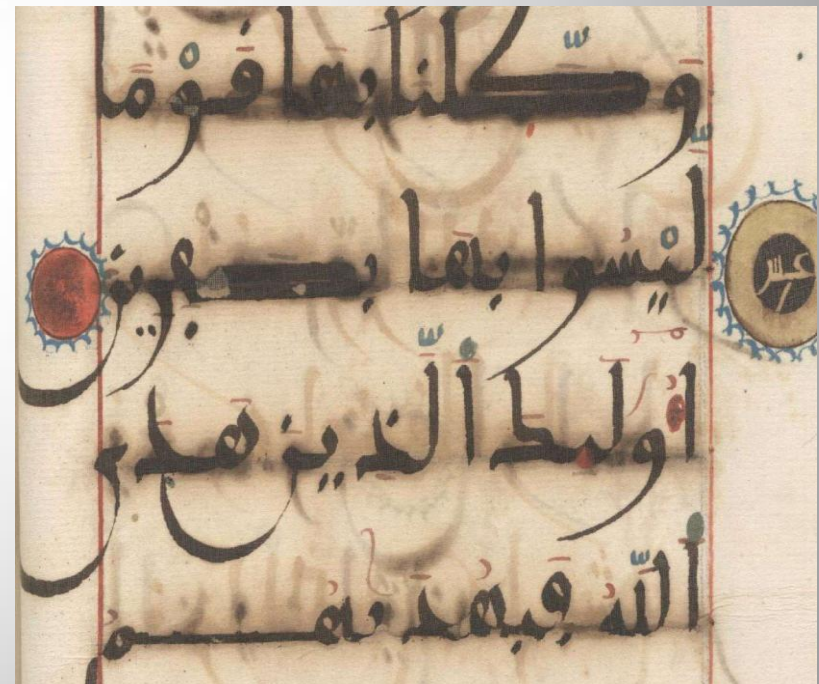 وكلنا بها قوما
ليسوا بها بكفرين
اولئك الذين هدى
الله فبهديهم